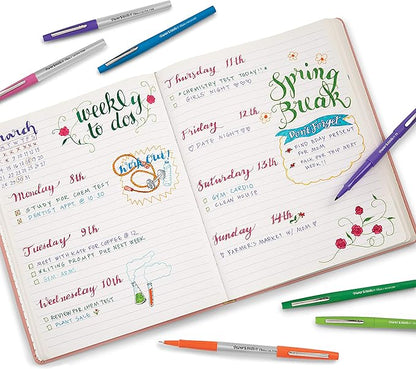 march
weekly
to dos
Monday 8th
STUDY FOR CHEM TEST
DENTIST APPT @ 10:30
Work Out!
Tuesday 9th
MEET WITH KATE FOR COFFEE @ 12
WRITING PROMPT DUE NEXT WEEK
GYM ARMS
Wednesday 10th
REVIEW FOR CHEM TEST
PLANT SALE
Thursday 11th
CHEMISTRY TEST TODAY!
GIRLS NIGHT
Friday 12th
DATE NIGHT
Saturday 13th
GYM CARDIO
CLEAN HOUSE
Sunday 14th
FARMER'S MARKET w/ MOM
Spring
Break
Don't Forget
FIND BDAY PRESENT
FOR MOM
PACK FOR TRIP NEXT
WEEK!
Paper Mate
Paper Mate
Paper Mate
Paper Mate
Paper Mate
Paper Mate
Paper Mate